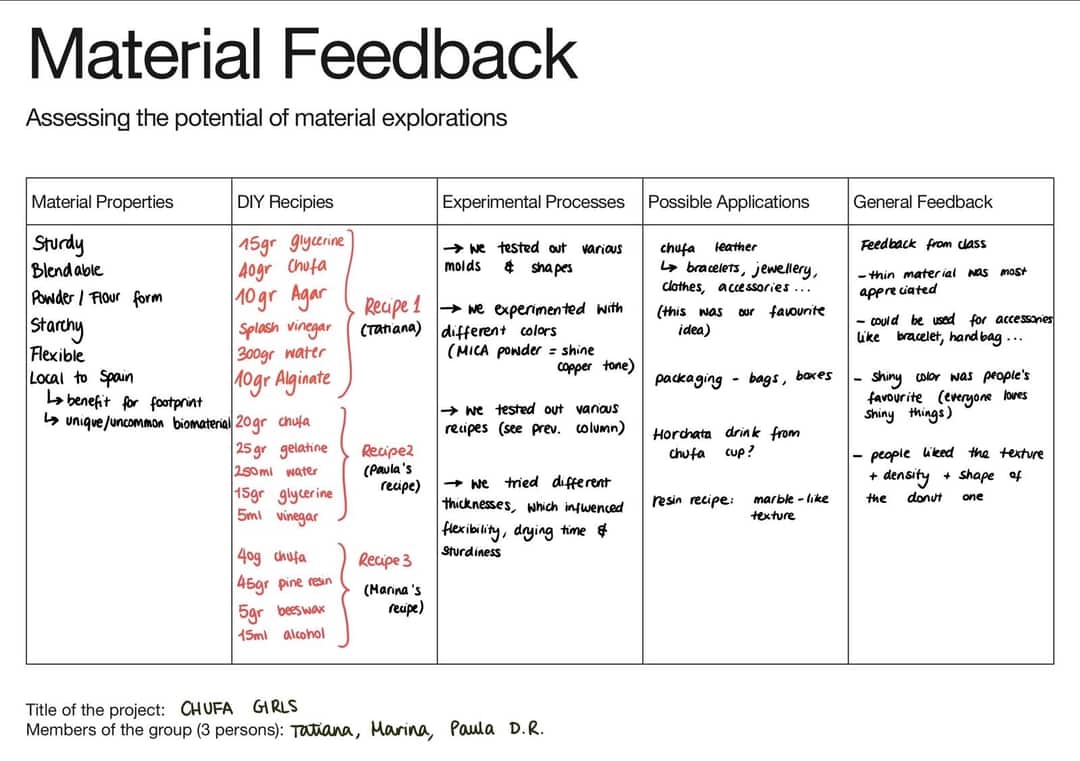 Material Feedback
Assessing the potential of material explorations
Material Properties
Sturdy
Blendable
Powder / Flour form
Starchy
Flexible
Local to Spain
↳ benefit for footprint
↳ unique/uncommon biomaterial
DIY Recipies
15gr glycerine
40gr Chufa
10gr Agar
Splash vinegar
300gr water
10gr Alginate
Recipe 1
(Tatiana)
20gr chufa
25gr gelatine
250ml water
15gr glycerine
5ml vinegar
Recipe2
(Paula's
recipe)
40g chufa
45gr pine resin
5gr beeswax
15ml alcohol
Recipe 3
(Marina's
recipe)
Experimental Processes
→ we tested out various
molds & shapes
→ we experimented with
different colors
(MICA powder = shine
copper tone)
→ we tested out various
recipes (see prev. column)
→ we tried different
thicknesses, which influenced
flexibility, drying time &
sturdiness
Possible Applications
chufa leather
↳ bracelets, jewellery,
clothes, accessories ...
(this was our favourite
idea)
packaging - bags, boxes
Horchata drink from
chufa cup?
resin recipe: marble-like
texture
General Feedback
Feedback from class
- thin material was most
appreciated
- could be used for accessories
like bracelet, handbag ...
- Shiny color was people's
favourite (everyone loves
shiny things)
- people liked the texture
+ density + shape of
the donut one
Title of the project: CHUFA GIRLS
Members of the group (3 persons): Tatiana, Marina, Paula D.R.